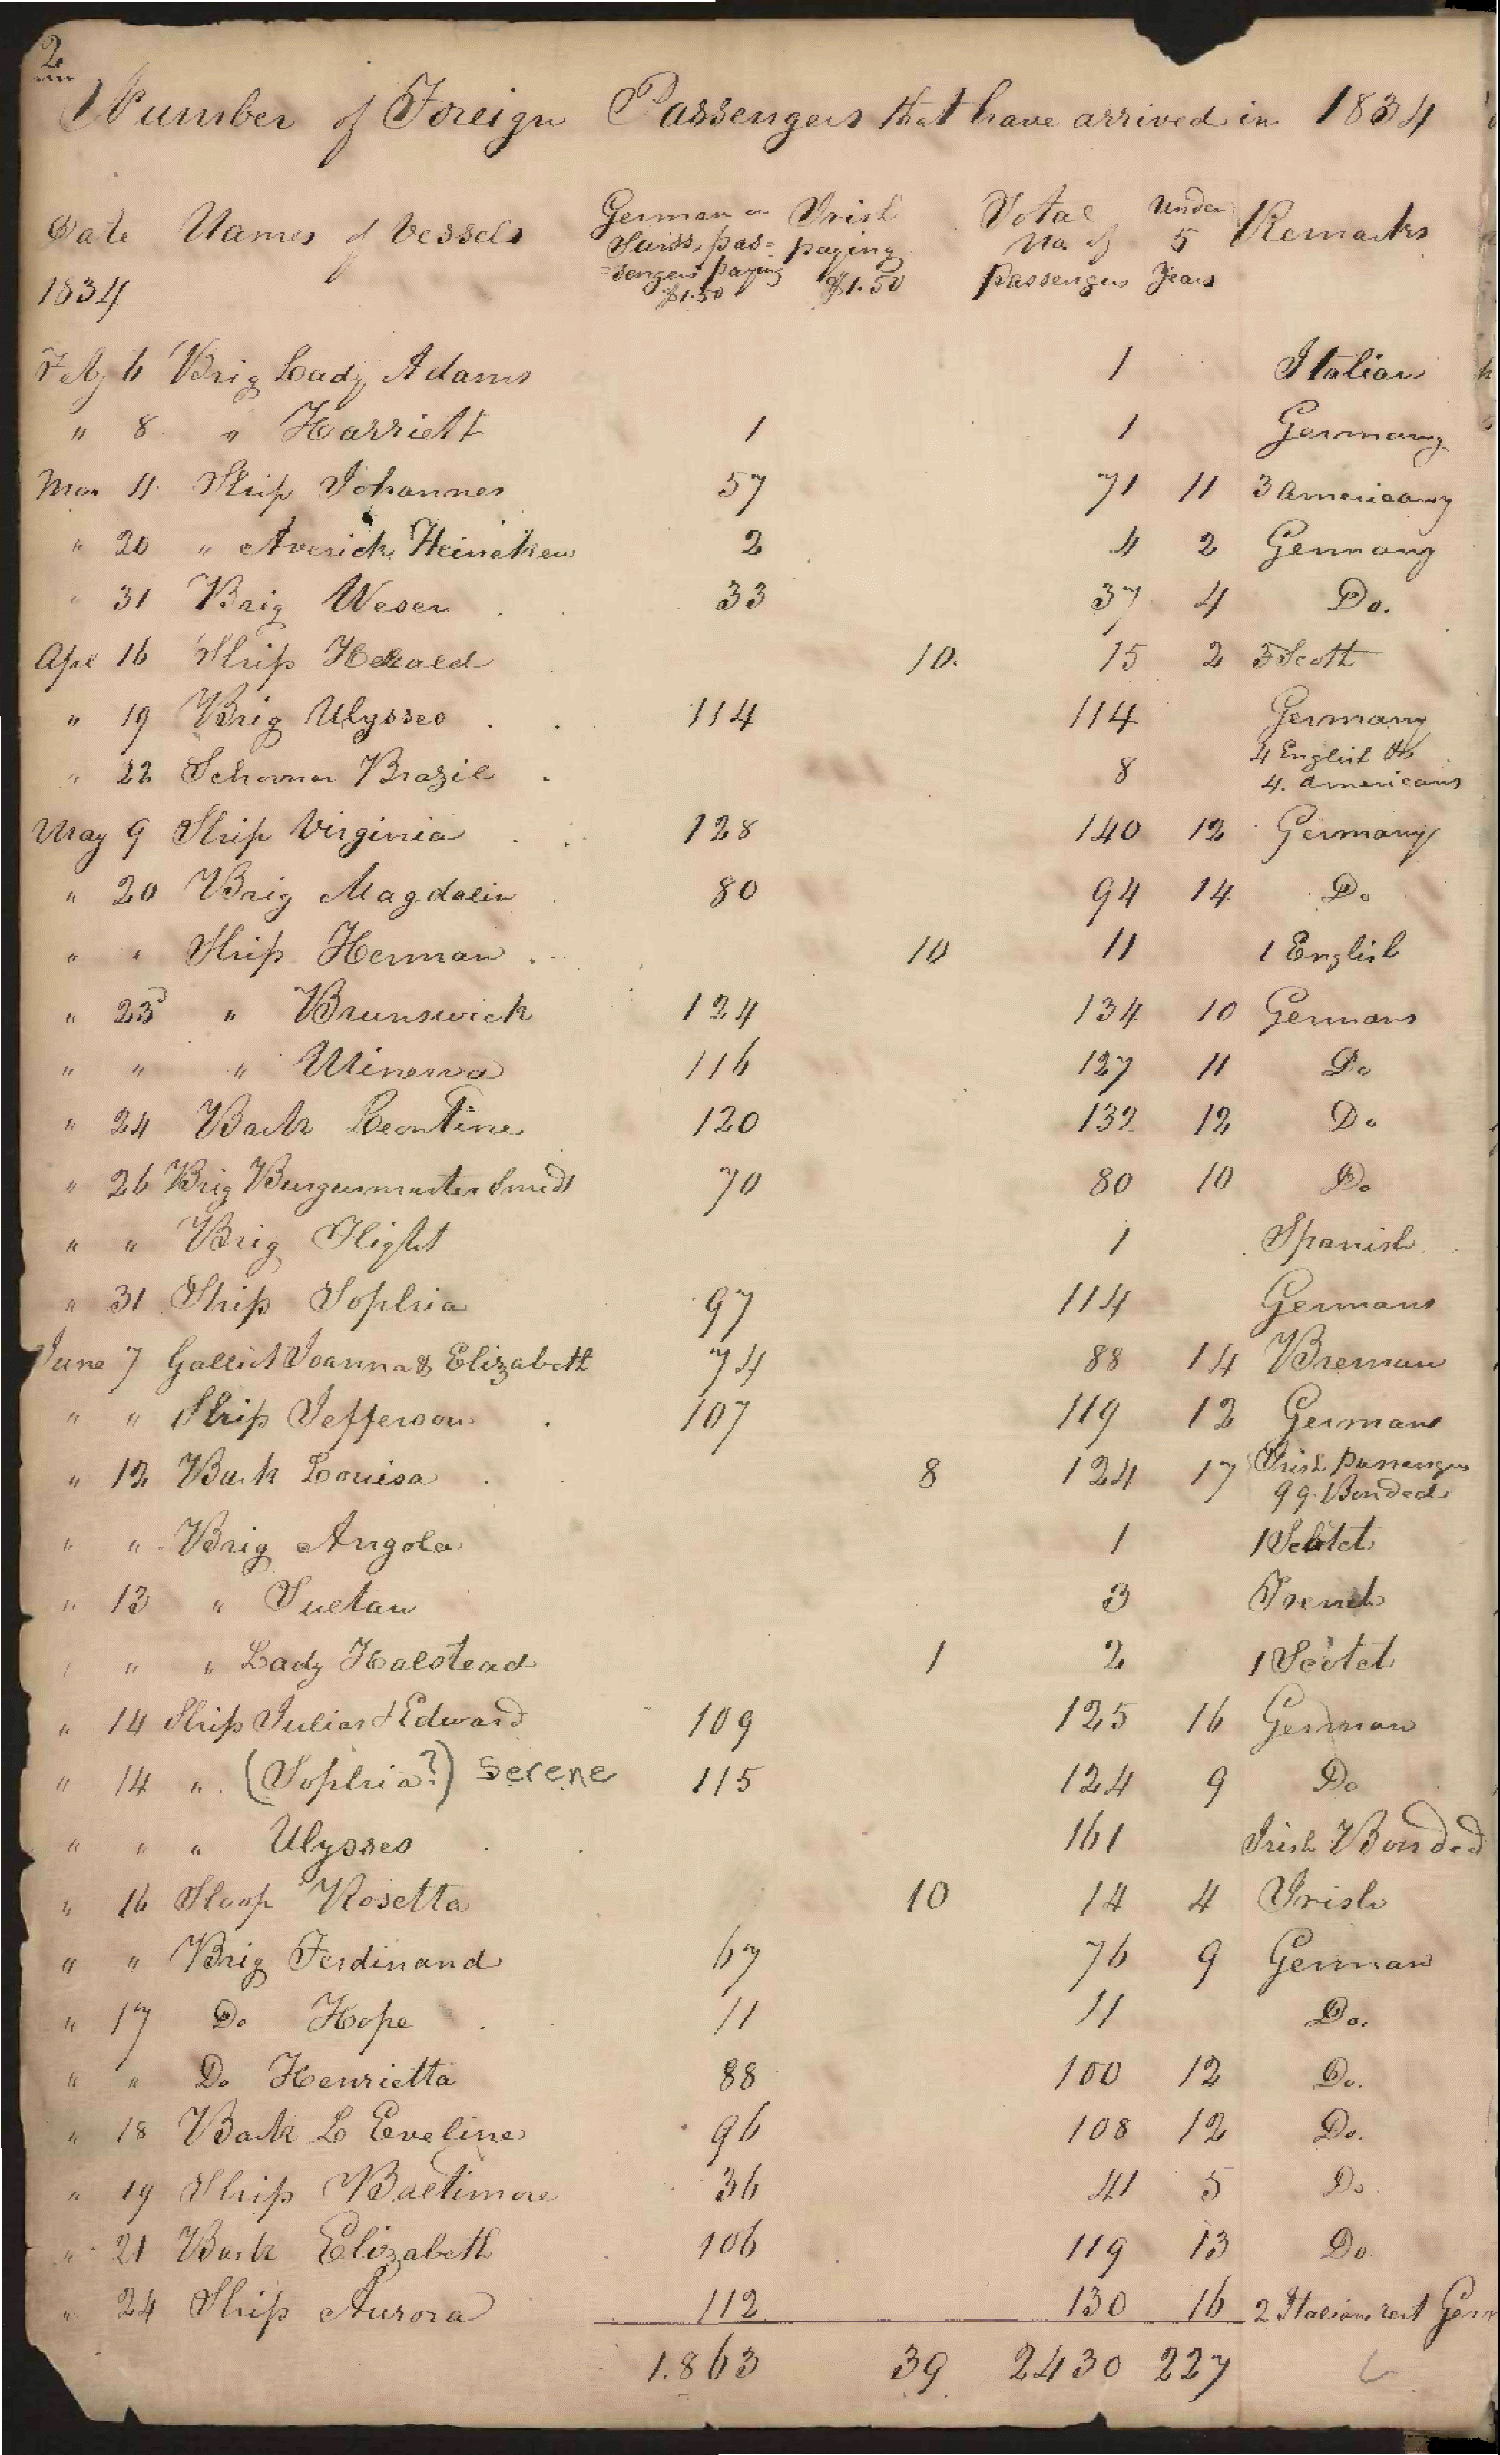 2
Number of Foreign Passengers that have arrived in 1834
Date Names of Vessels German or Suiss pas=sengers paying $1.50 Irish paying $1.50 Total No. of passengers Under 5 Years Remarks
1834
Feby 6 Brig Lady Adams 1 Italian
" 8 " Harriett 1 1 Germany
Mar 11 Ship Johannes 57 71 11 3 Americans
" 20 " Averick Heineken 2 4 2 Germany
" 31 Brig Weser 33 37 4 Do.
Apl 16 Ship Herald 10. 15 2 3 Scott
" 19 Brig Ulysses 114 114 Germany
" 22 Schooner Brazil 8 4 English & 4. Americans
May 9 Ship Virginia 128 140 12 Germany
" 20 Brig Magdalin 80 94 14 Do
" " Ship Herman 10 11 1 English
" 23d " Brunswick 124 134 10 Germans
" " " Minerva 116 127 11 Do
" 24 Bark Leontine 120 132 12 Do
" 26 Brig Burgermuster Smidt 70 80 10 Do
" " Brig Flight 1 Spanish
" 31 Ship Sophia 97 114 Germans
June 7 Galliot Joanna & Elizabeth 74 88 14 Breman
" " Ship Jefferson 107 119 12 Germans
" 12 Bark Louisa 8 124 17 Irish Passenger 99 Bonded
" " Brig Angola 1 1 Scotch
" 13 " Sultan 3 French
" " " Lady Halstead 1 2 1 Scotch
" 14 Ship Julias & Edward 109 125 16 German
" 14 " (Sophia?) Serene 115 124 9 Do
" " " Ulysses 161 Irish Bonded
" 16 Sloop Rosetta 10 14 4 Irish
" " Brig Ferdinand 67 76 9 German
" 17 Do Hope 11 11 Do.
" " Do Henrietta 88 100 12 Do.
" 18 Bark L Eveline 96 108 12 Do.
" 19 Ship Baltimore 36 41 5 Do.
" 21 Bark Elizabeth 106 119 13 Do
" 24 Ship Aurora 112 130 16 2 Italians rest Germ
1.863 39 2430 227